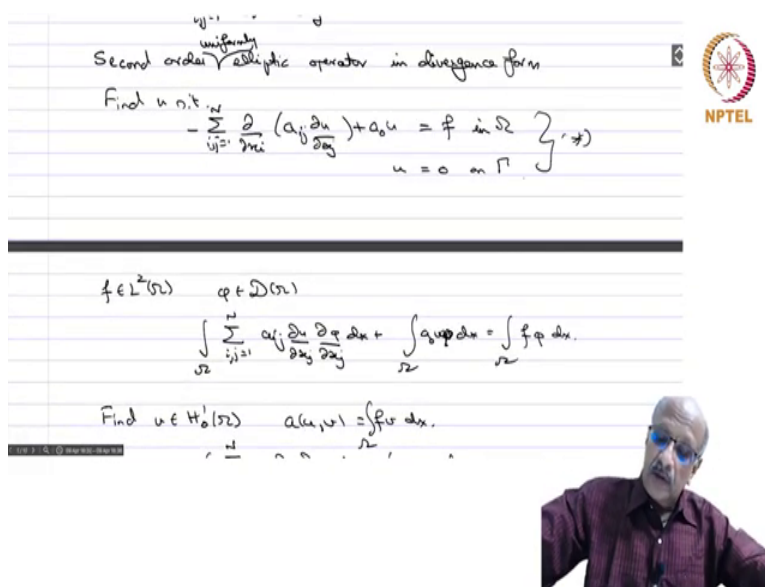 i,j=1
uniformly
Second order elliptic operator in divergence form
Find u s.t.
- ∑_{i,j=1}^{N} ∂/∂x_i (a_{ij} ∂u/∂x_j) + a_0 u = f in Ω } (*)
u = 0 on Γ
NPTEL
f ∈ L²(Ω) φ ∈ D(Ω)
∫_Ω ∑_{i,j=1}^{N} a_{ij} ∂u/∂x_j ∂φ/∂x_j dx + ∫_Ω a_0 uφ dx = ∫_Ω f φ dx.
Find u ∈ H_0^1(Ω) a(u,v) = ∫_Ω f v dx.